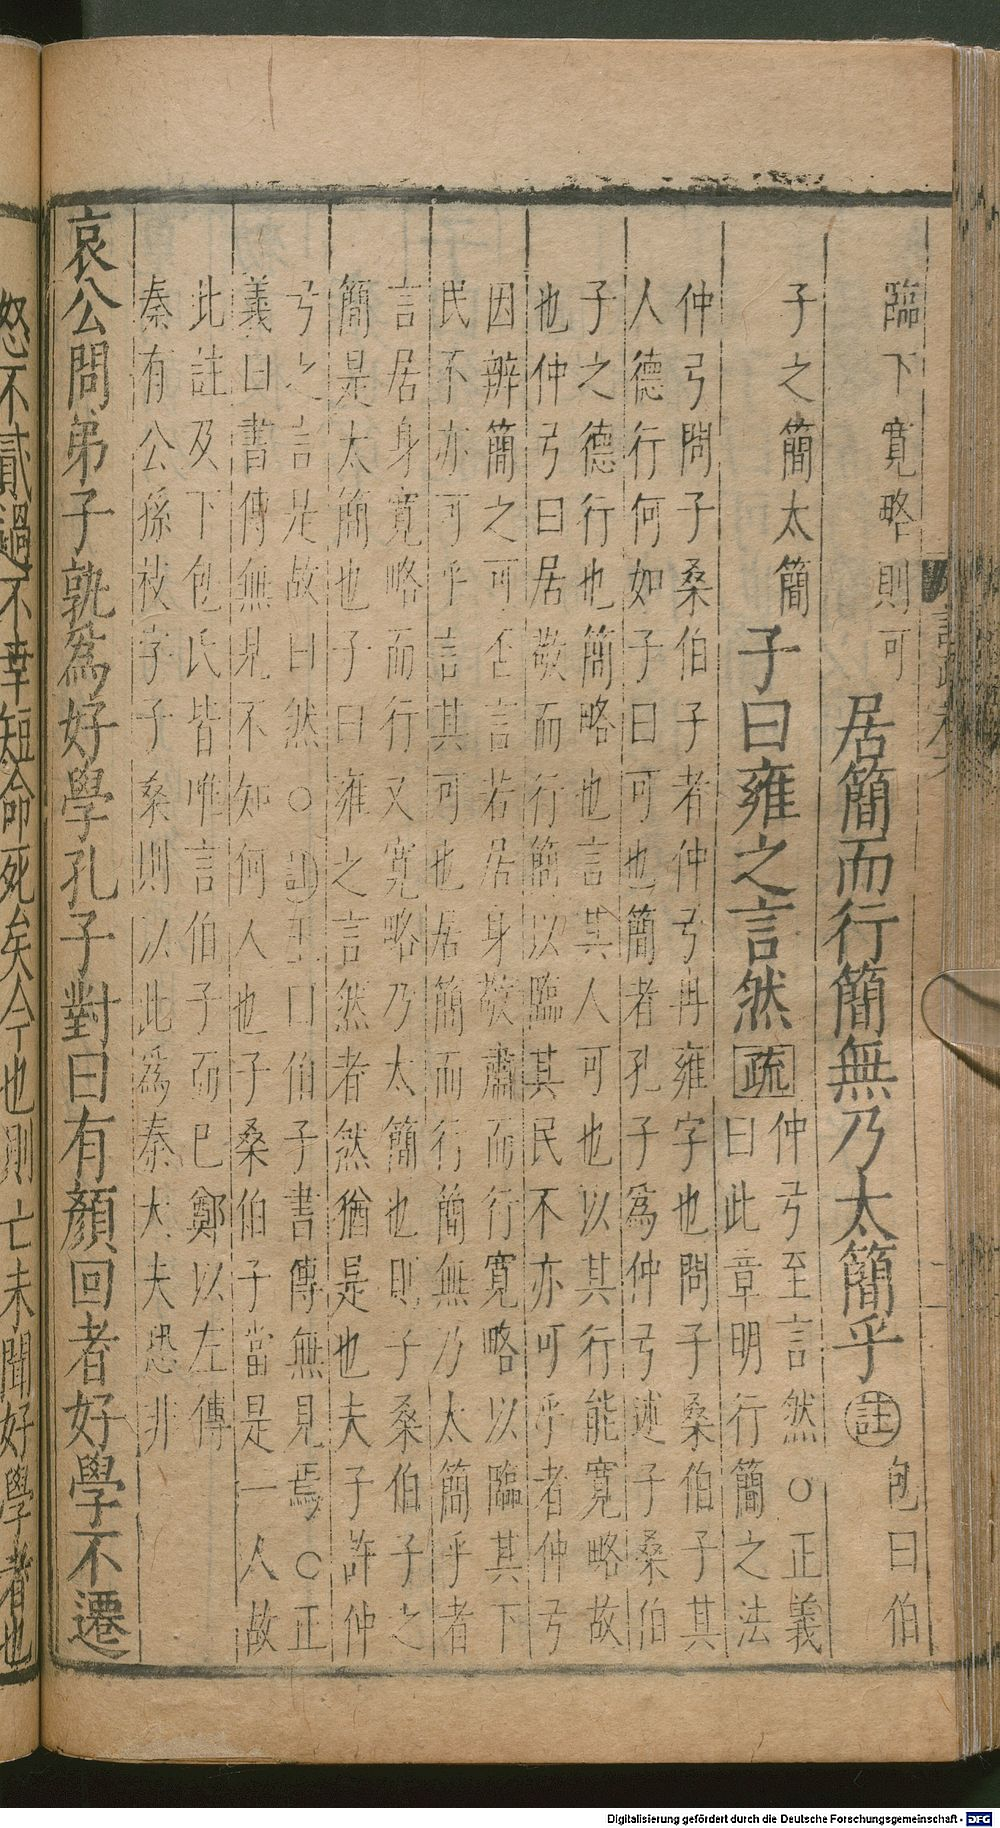 語疏卷六 二
臨下寬略則可 居簡而行簡無乃太簡乎 註 包曰伯
子之簡太簡 子曰雍之言然 疏 仲弓至言然○正義
曰此章明行簡之法
仲弓問子桑伯子者仲弓冉雍字也問子桑伯子其
人德行何如子曰可也簡者孔子爲仲弓述子桑伯
子之德行也簡略也言其人可也以其行能寬略故
也仲弓曰居敬而行簡以臨其民不亦可乎者仲弓
因辨簡之可否言若居身敬肅而行寬略以臨其下
民不亦可乎言其可也居簡而行簡無乃太簡乎者
言居身寬略而行又寬略乃太簡也則子桑伯子之
簡是太簡也子曰雍之言然者然猶是也夫子許仲
弓之言是故曰然○註王曰伯子書傳無見焉○正
義曰書傳無見不知何人也子桑伯子當是一人故
此註及下包氏皆唯言伯子而已鄭以左傳
秦有公孫枝字子桑則以此爲秦大夫恐非
哀公問弟子孰爲好學孔子對曰有顏回者好學不遷
怒不貳過不幸短命死矣今也則亡未聞好學者也
Digitalisierung gefördert durch die Deutsche Forschungsgemeinschaft - DFG